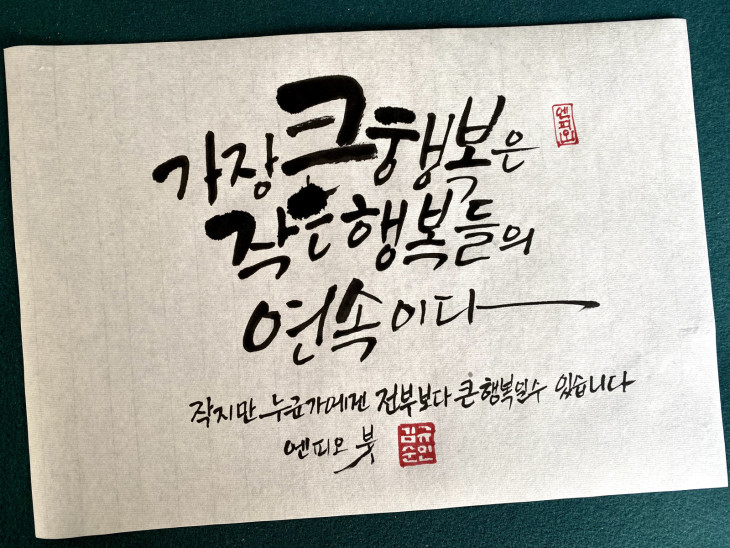 가장 큰 행복은
엔피오
작은 행복들의
연속이다
작지만 누군가에겐 전부보다 큰 행복일수 있습니다
엔피오 붓
김규순인